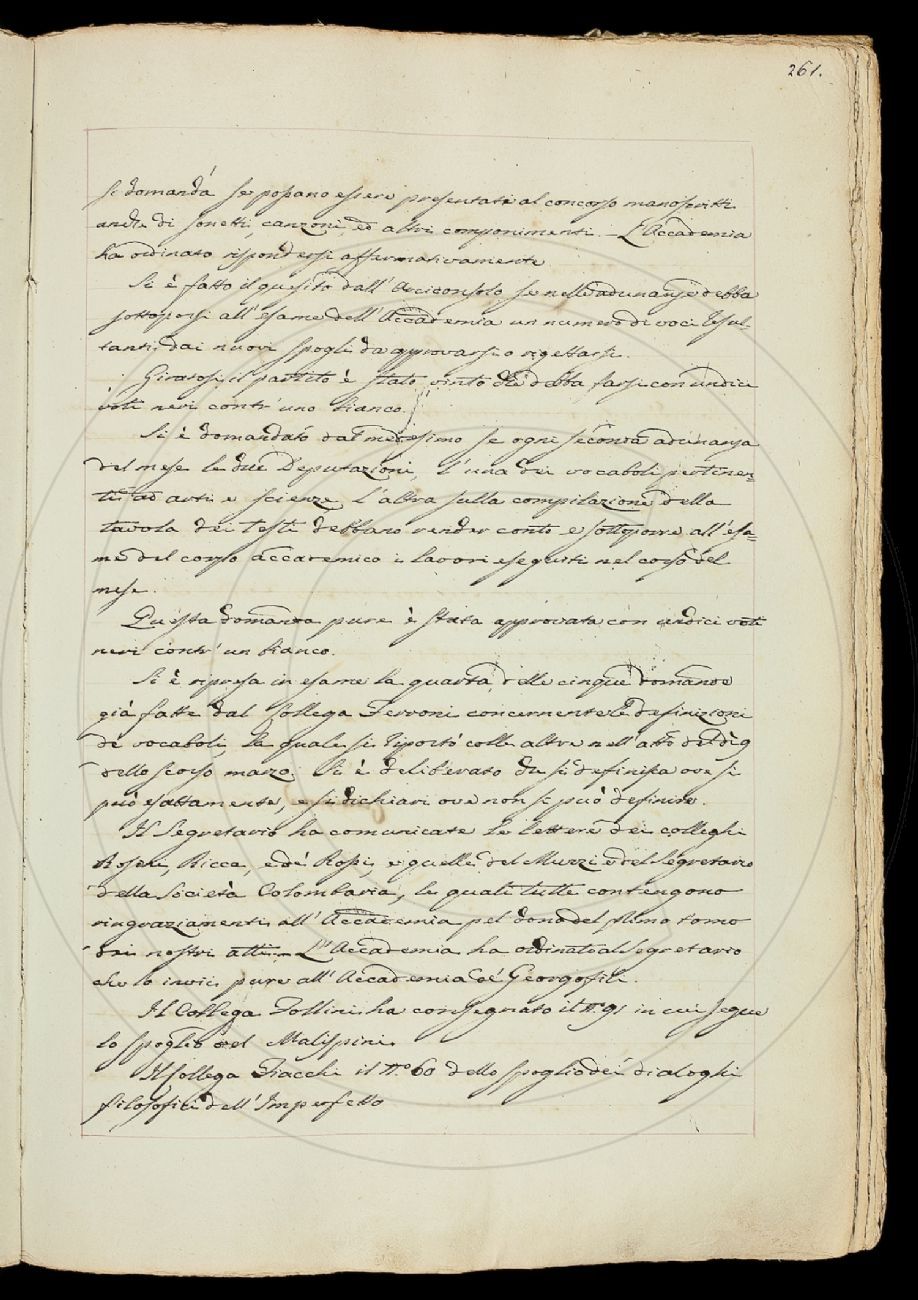 261.
si domanda se possano essere presentati al concorso manoscritti
anche di sonetti, canzoni, ed altri componimenti. L'Accademia
ha ordinato rispondersi affermativamente
Si è fatto il quesito dall'Arciconsolo se nelle adunanze debba
sottoporsi all'esame dell'Accademia un numero di voci resul-
tanti dai nuovi spogli da approvarsi o rigettarsi.
Giratosi il partito è stato vinto che debba farsi con undici
voti neri contr'uno bianco.
Si è domandato dal medesimo se ogni seconda adunanza
del mese le due Deputazioni, l'una dei vocaboli pertinen=
ti ad arti e scienze l'altra sulla compilazione della
tavola dei testi debbano render conto e sottoporre all'esa=
me del corpo accademico i lavori eseguiti nel corso del
mese.
Questa domanda pure è stata approvata con undici voti
neri contr'un bianco.
Si è ripresa in esame la quarta delle cinque domande
già fatte dal Collega Ferroni concernente le definizioni
de vocaboli, la quale si riportò colle altre nell'atto del dì 9
dello scorso marzo. Si è deliberato che si definisca ove si
può esattamente, e si dichiari ove non si può definire.
Il Segretario ha comunicate le lettere dei colleghi
Rosini, Ricca, e de' Rossi, e quelle del Muzzi e del Segretario
della Società Colombaria, le quali tutte contengono
ringraziamenti all'Accademia pel dono del primo tomo
dei nostri atti. L'Accademia ha ordinato al Segretario
che lo invii pure all'Accademia de' Georgofili.
Il Collega Follini ha consegnato il n.° 91 in cui segue
lo spoglio del Malispini.
Il Collega Fiacchi il n.° 60 dello spoglio dei dialoghi
filosofici dell'Imperfetto